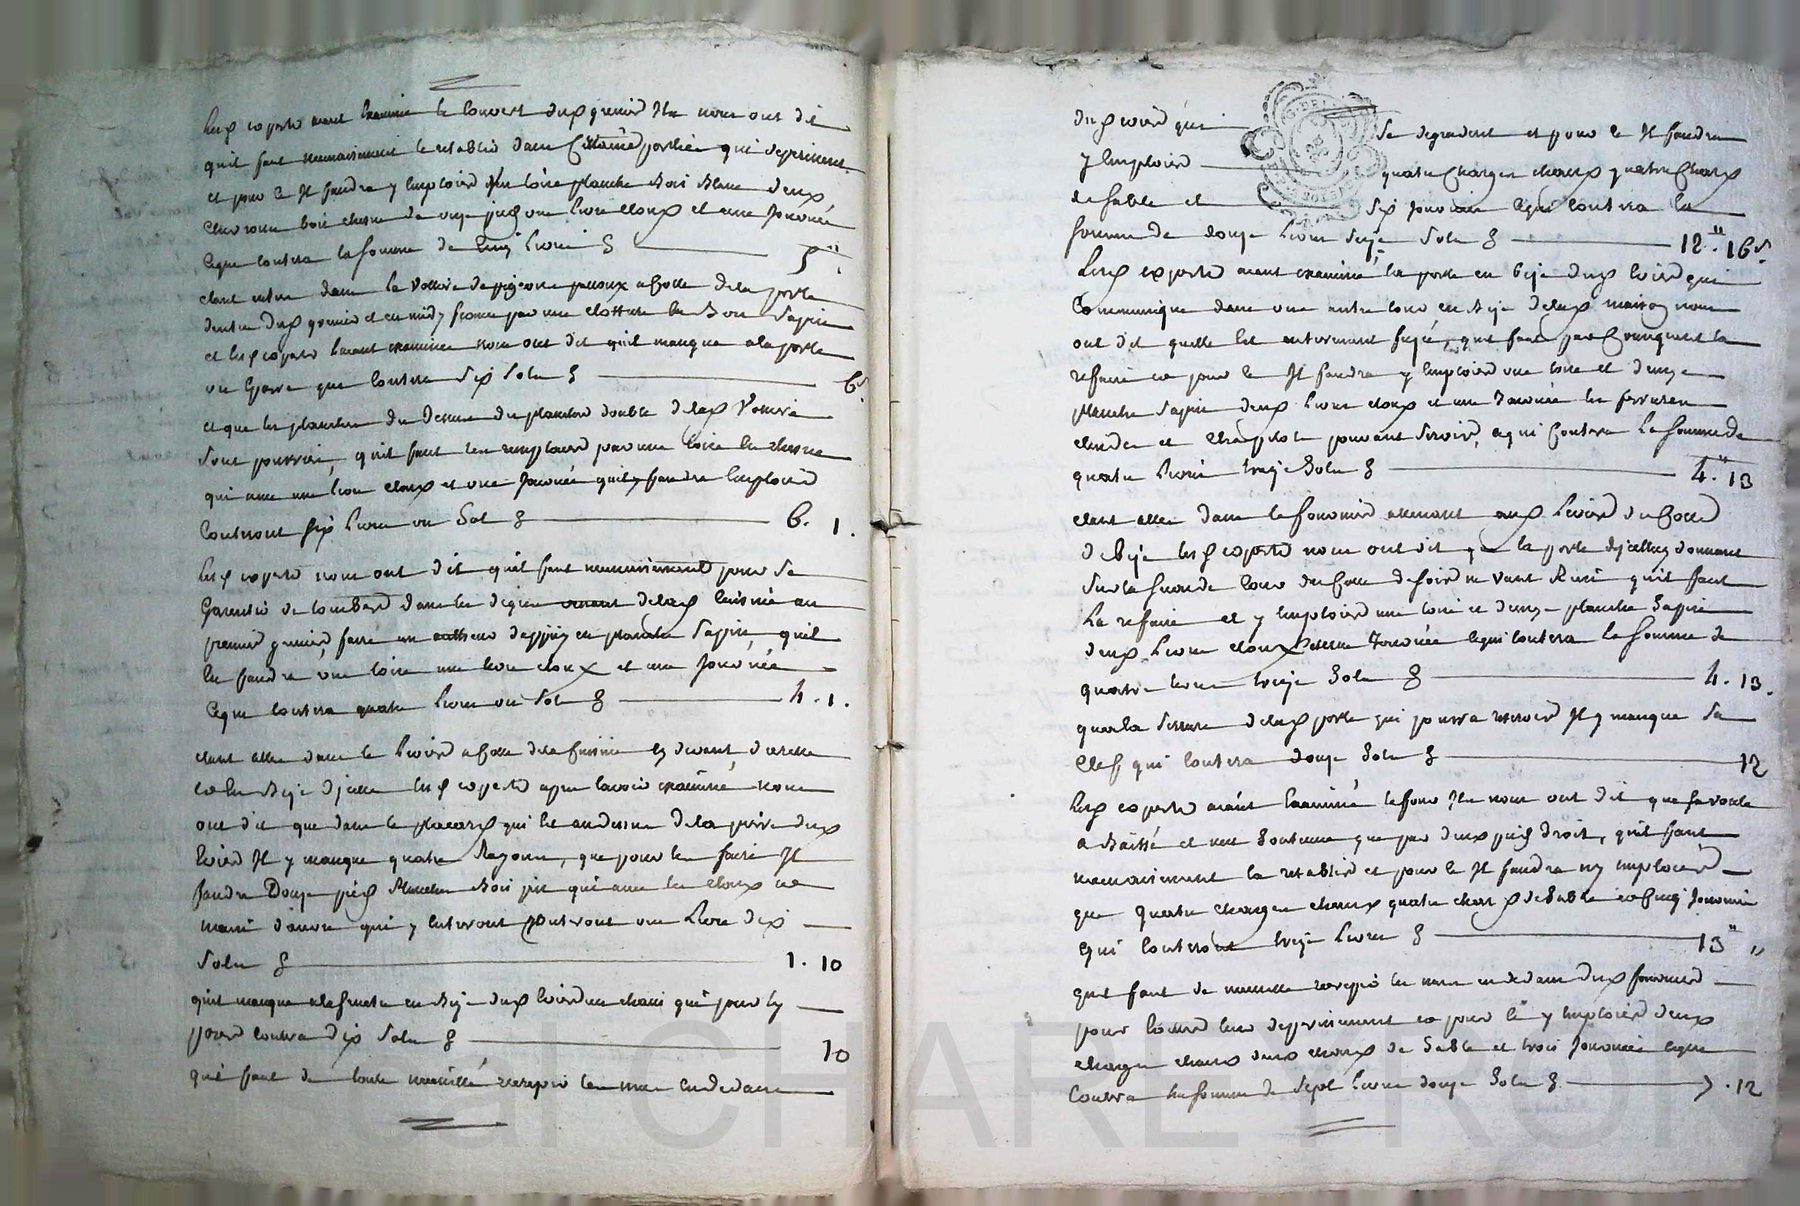 Lesd experts aiant examiné le couvert dud grenier Ils nous ont dit
qu'il faut necessairement le retablir dans certaine partie qui deperissent
et pour ce Il faudra y emploier une toise planche Bois Blanc deux
chevrons bois chesne de onze pieds une livre cloux et une Journée
Ce qui coutera la somme de Cinq livres 5"
etant entré dans la voliere de pigeons pattoux a Cotté de la porte
d'entrée dud grenier et en midy fermée par une clotture de Bois Sapin
et lesd experts l'aiant examinée nous ont dit qu'il manque a la porte
une qui coutera Six Sols 6s
et que les planches du dessus du plancher double de lad Voliere
Sont pourries, qu'il faut les remplacer par une toise de chesne
qui avec une livre cloux et une Journée qu'il y faudra emploier
Couteront six livres un Sol 6. 1.
Lesd experts nous ont dit qu'il faut necessairement pour se
garentir de tomber dans les degrés venant de lad cuisine au
premier grenier, faire un d'appuy en planche Sapin, qu'il
y faudra une toise une livre cloux et une Journée
Ce qui coutera quatre livres un Sol 4. 1.
etant allés dans le evier a Cotté de la Cuisine en devant d'icelle
et en Bize d'icelle lesd experts apres l'avoir examiné nous
ont dit que dans le placard qui est au dessus de la pierre dud
evier Il y manque quatre Rayons, que pour les faire Il
faudra Douze pieds planches Bois pin qui avec les cloux et
main d'œuvre qui y entreront Couteront une Livre dix
Sols 1. 10
qu'il manque a la fenetre en Bize dud evier un chassi qui pour le
poser coutera dix Sols 10
qu'il faut de toute necessité recrepir les murs en dedans
dud evier qui se degradent et pour ce Il faudra
y emploier quatre Charges chaux quatre Chars
de sable et Six Journées Ce qui coutera la
somme de douze livres Seize Sols 12". 16s.
Lesd experts aiant examiné la porte en bize dud evier qui
Communique dans une autre cour en Bize de lad maison nous
ont dit quelle est entierement usée, qu'il faut par Consequent la
refaire et pour ce Il faudra y emploier une toise et demye
planche Sapin deux livres cloux et une Journée les ferrures
et pouvant Servir, ce qui Coutera la Somme de
quatre livres treize Sols 4". 13
etant allés dans le fournier attenant aud Evier du Cotté
de Bize lesd experts nous ont dit que la porte d'icelluy donnant
Sur la Seconde Cour du Cotté de soir ne vaut Rien qu'il faut
La refaire et y emploier une toise et demye planche Sapin
deux livres cloux et une Journée ce qui coutera la somme de
quatre livres treize Sols 4. 13.
que la Serrure de lad porte qui pourra reservir Il y manque Sa
Clef, qui coutera douze Sols 12
Lesd experts aiant Examiné le four Ils nous ont dit que sa voute
a Baissé et nest Soutenue que par deux pieds droit, qu'il faut
necessairement la retablir et pour ce Il faudra n'y emploier
que quatre charges chaux quatre chars de Sable et Cinq Journées
Ce qui Couteront treize livres 13" "
qu'il faut de necessité recrepir les murs en dedans dud fournier
pour eviter leur deperissement et pour ce y emploier deux
charges chaux deux chars de Sable et trois Journées ce qui
Coutera la somme de Sept livres douze Sols 7. 12